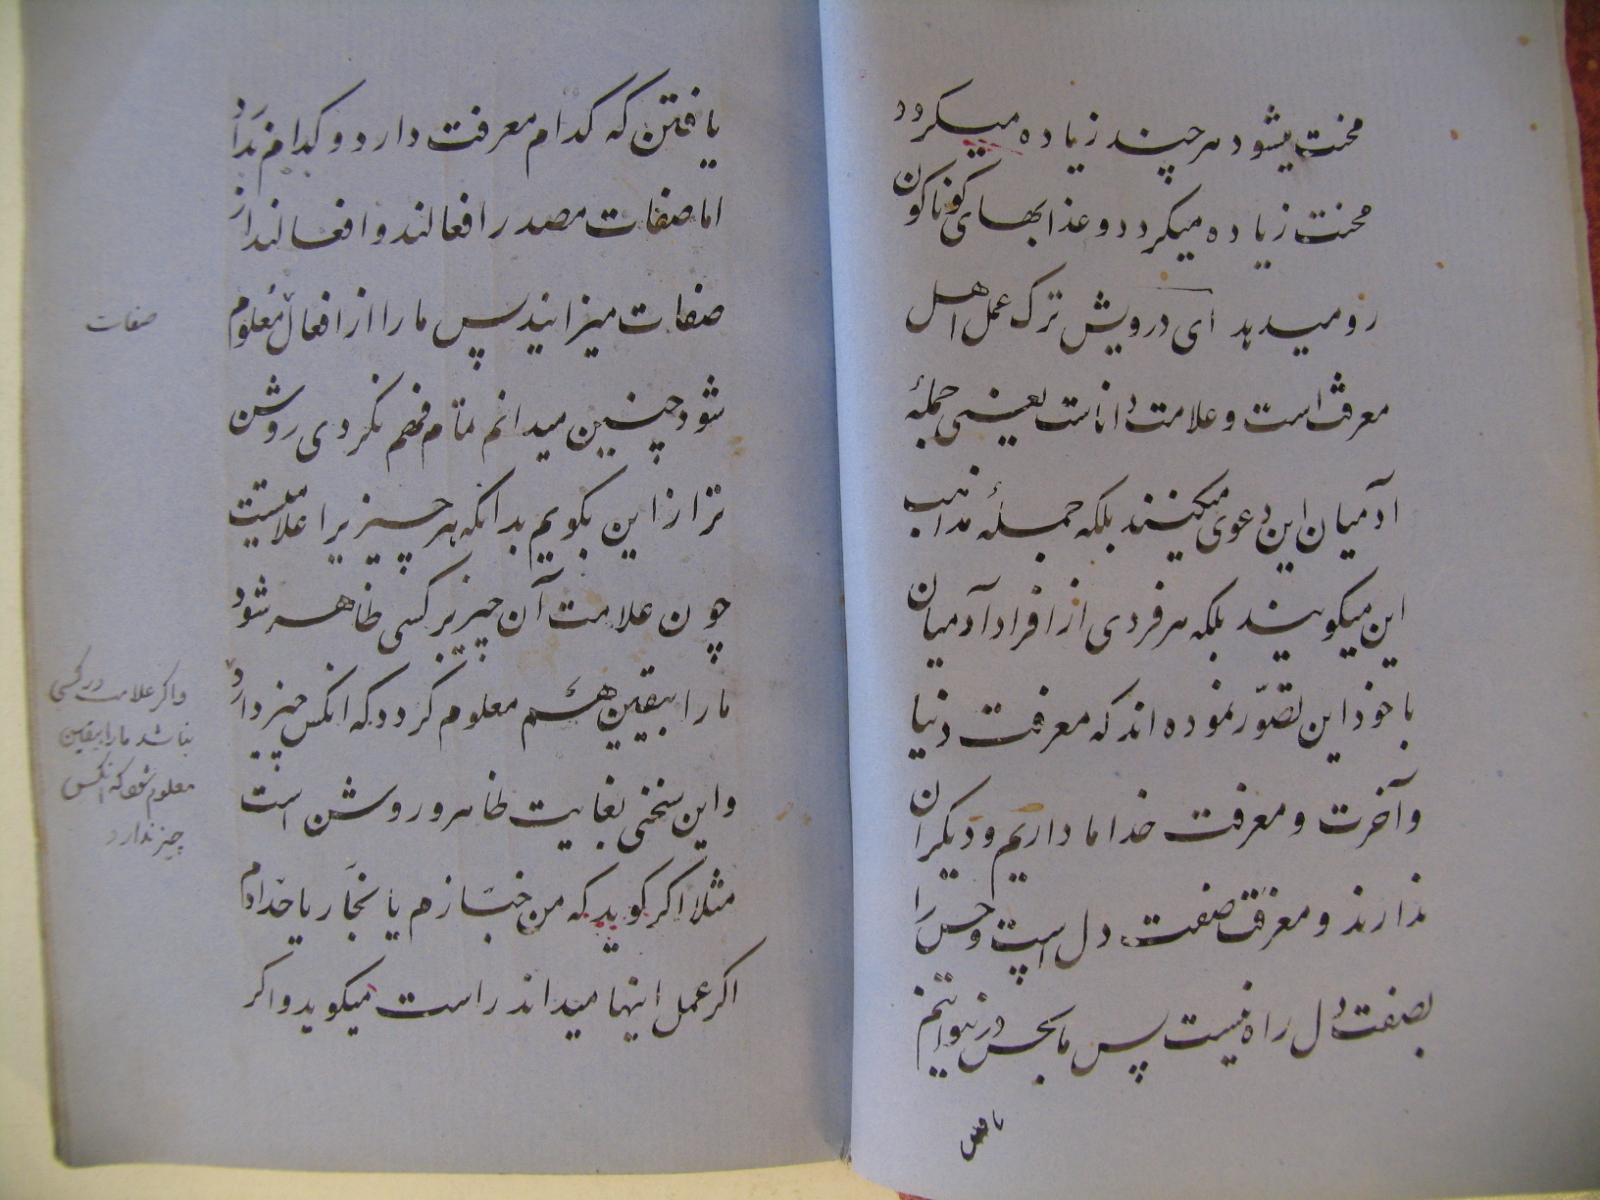 محنت میشود هر چند زیاده میکردد
محنت زیاده میکردد و عذابهای کوناکون
رو میدهد ای درویش ترک عمل اهل
معرفت است و علامت داناست یعنی جملهٔ
ادمیان این دعوی میکنند بلکه جملهٔ مذاهب
این میکویند بلکه هر فردی از افراد آدمیان
با خود این تصوّر نموده اند که معرفت دنیا
و آخرت و معرفت خدا ما داریم و دیکران
ندارند و معرفت صفت دل است و حس را
بصفت دل راه نیست پس ما بحس در نتوانیم
یافتن
یافتن که کدام معرفت دارد و کدام ندارد
اما صفات مصدر افعالند و افعالند از
صفات میزانید پس ما را از افعال معلوم
شود چنین میدانم تمام فهم نکردی روشن
تر از این بکویم بدانکه هر چیزیرا علامتیست
چون علامت آن چیز بر کسی ظاهر شود
ما را بیقین هم معلوم کردد که انکس چیز دارد
و این سخنی بغایت ظاهر و روشن است
مثلا اکر کوید که من خبّازم یا نجّار یا حدّادم
اکر عمل اینها میداند راست میکوید و اکر
صفات
و اکر علامت در کسی
نباشد ما را بیقین
معلوم شود که انکس
چیز ندارد